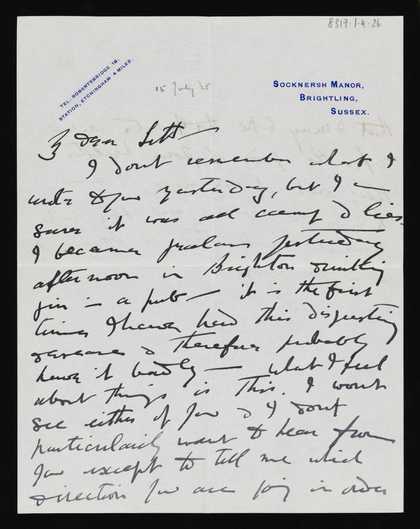 8317.1.4.26
TEL. ROBERTSBRIDGE 18.
STATION, ETCHINGHAM 4 MILES.
15 July
SOCKNERSH MANOR,
BRIGHTLING,
SUSSEX.
My dear
I don't remember what I
wrote to you yesterday, but I am
sure it was all lies.
I became jealous yesterday
afternoon in Brighton drinking
gin in a pub – it is the first
time I have had this disgusting
disease & therefore probably
have it badly – what I feel
about things is this. I won't
see either of you & I don't
particularly want to hear from
you except to tell me which
direction you are going in order